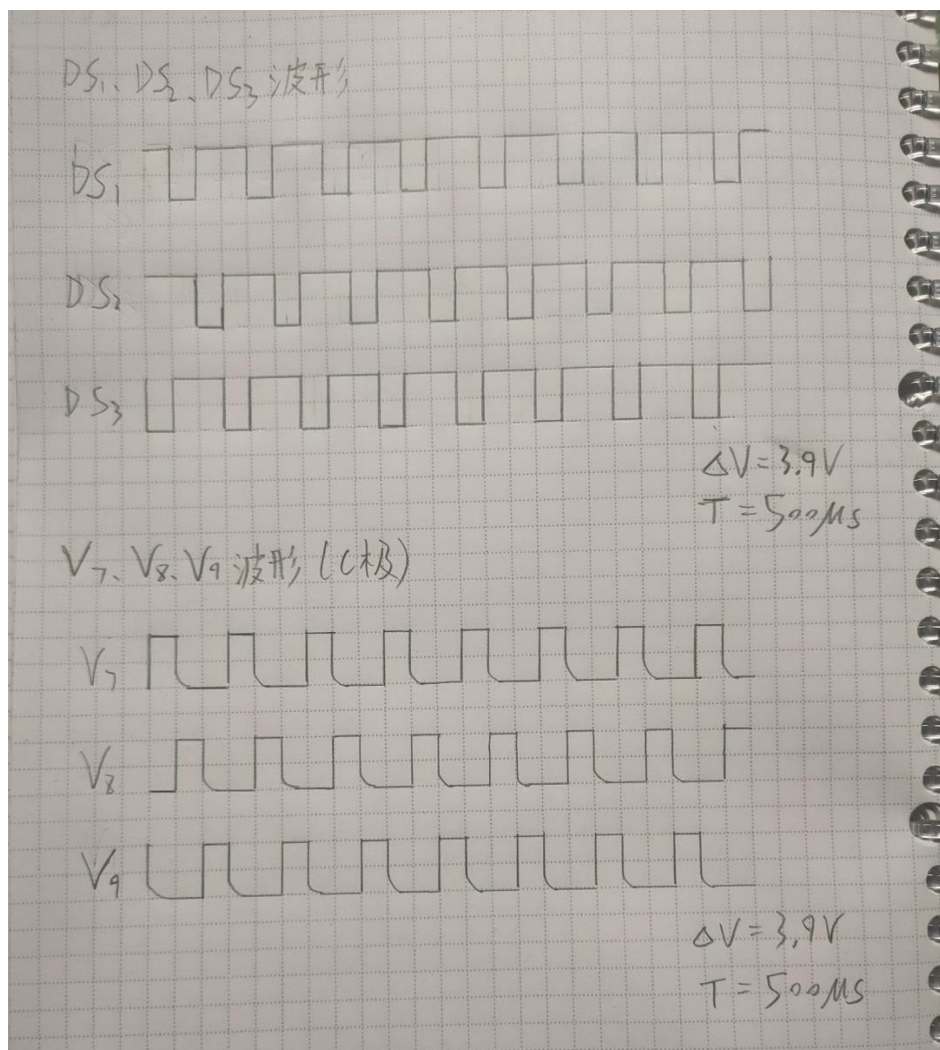 DS₁、DS₂、DS₃ 波形
DS₁
DS₂
DS₃
ΔV=3.9V
T=500μs
V₇、V₈、V₉ 波形 (C极)
V₇
V₈
V₉
ΔV=3,9V
T=500μs